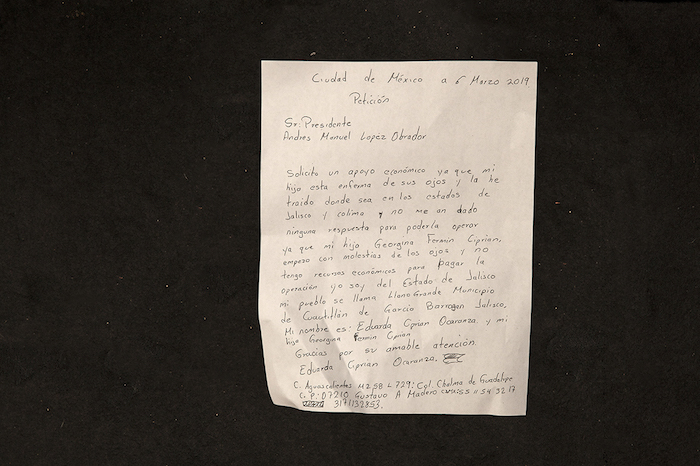 Ciudad de México a 6 Marzo 2019
Petición
Sr. Presidente
Andres Manuel Lopéz Obrador
Solicito un apoyo económico ya que mi
hija esta enferma de sus ojos y la he
traido donde sea en los estados de
Jalisco y colima y no me an dado
ninguna respuesta para poderla operar
ya que mi hija Georgina Fermin Ciprian,
empezo con molestias de los ojos y no
tengo recursos económicos para pagar la
operación yo soy del Estado de Jalisco
mi pueblo se llama Llano Grande Municipio
de Cuautitlán de García Barragan Jalisco,
Mi nombre es: Eduarda Ciprian Ocaranza y mi
hija Georgina Fermin Ciprian
Graccias por su amable atención.
Eduarda Ciprian Ocaranza.
C. Aguascalientes M258 L729: Col. Chalma de Guadalupe
C.P: 07210 Gustavo A Madero
3171132853.